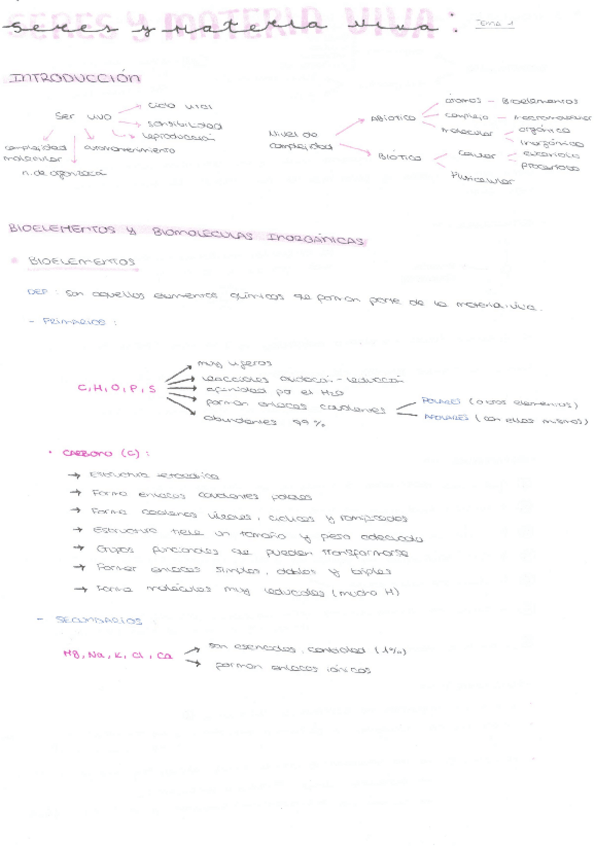 SERES Y MATERIA VIVA: Tema 1
INTRODUCCIÓN
Ser vivo
ciclo vital
sensibilidad
reproducción
automantenimiento
complejidad molecular
n. de organización
Nivel de complejidad
Abiótico
átomos - Bioelementos
complejo - macromolecular
molecular
orgánica
inorgánica
Biótico
celular
eucariotas
procariotas
Pluricelular
BIOELEMENTOS Y BIOMOLECULAS INORGÁNICAS
BIOELEMENTOS
DEF: son aquellos elementos químicos que forman parte de la materia viva.
- Primarios:
C, H, O, P, S
muy ligeros
reacciones oxidación-reducción
afinidad por el H2O
forman enlaces covalentes
POLARES (otros elementos)
APOLARES (con ellos mismos)
abundantes 99%
• CARBONO (C):
→ Estructura tetraédrica
→ Forma enlaces covalentes polares
→ Forma cadenas lineales, cíclicas y ramificadas
→ Estructura tiene un tamaño y peso adecuado
→ Grupos funcionales que pueden transformarse
→ Formar enlaces simples, dobles y triples
→ Forma moléculas muy reducidas (mucho H)
- SECUNDARIOS:
Mg, Na, K, Cl, Ca
son esenciales, cantidad (1%)
forman enlaces iónicos